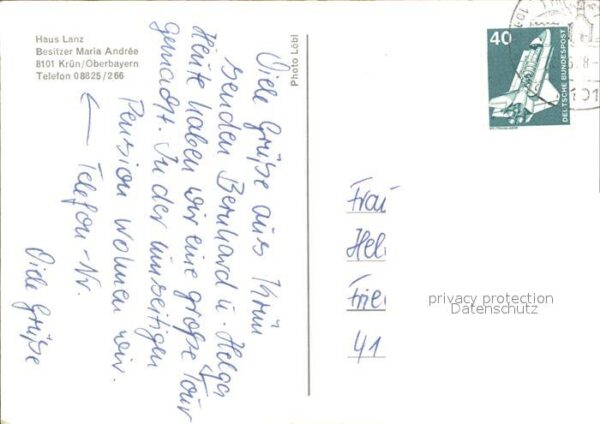 Haus Lanz
Besitzer Maria Andrée
8101 Krün/Oberbayern
Telefon 08825/266
Viele Grüße aus Krün
senden Bernhard u. Helga
Heute haben wir eine große Tour
gemacht. In der umseitigen
Pension wohnen wir.
← Telefon-Nr.
Viele Grüße
Photo Löbl
40
DEUTSCHE BUNDESPOST
Frau
Hel
Frie
41
privacy protection
Datenschutz